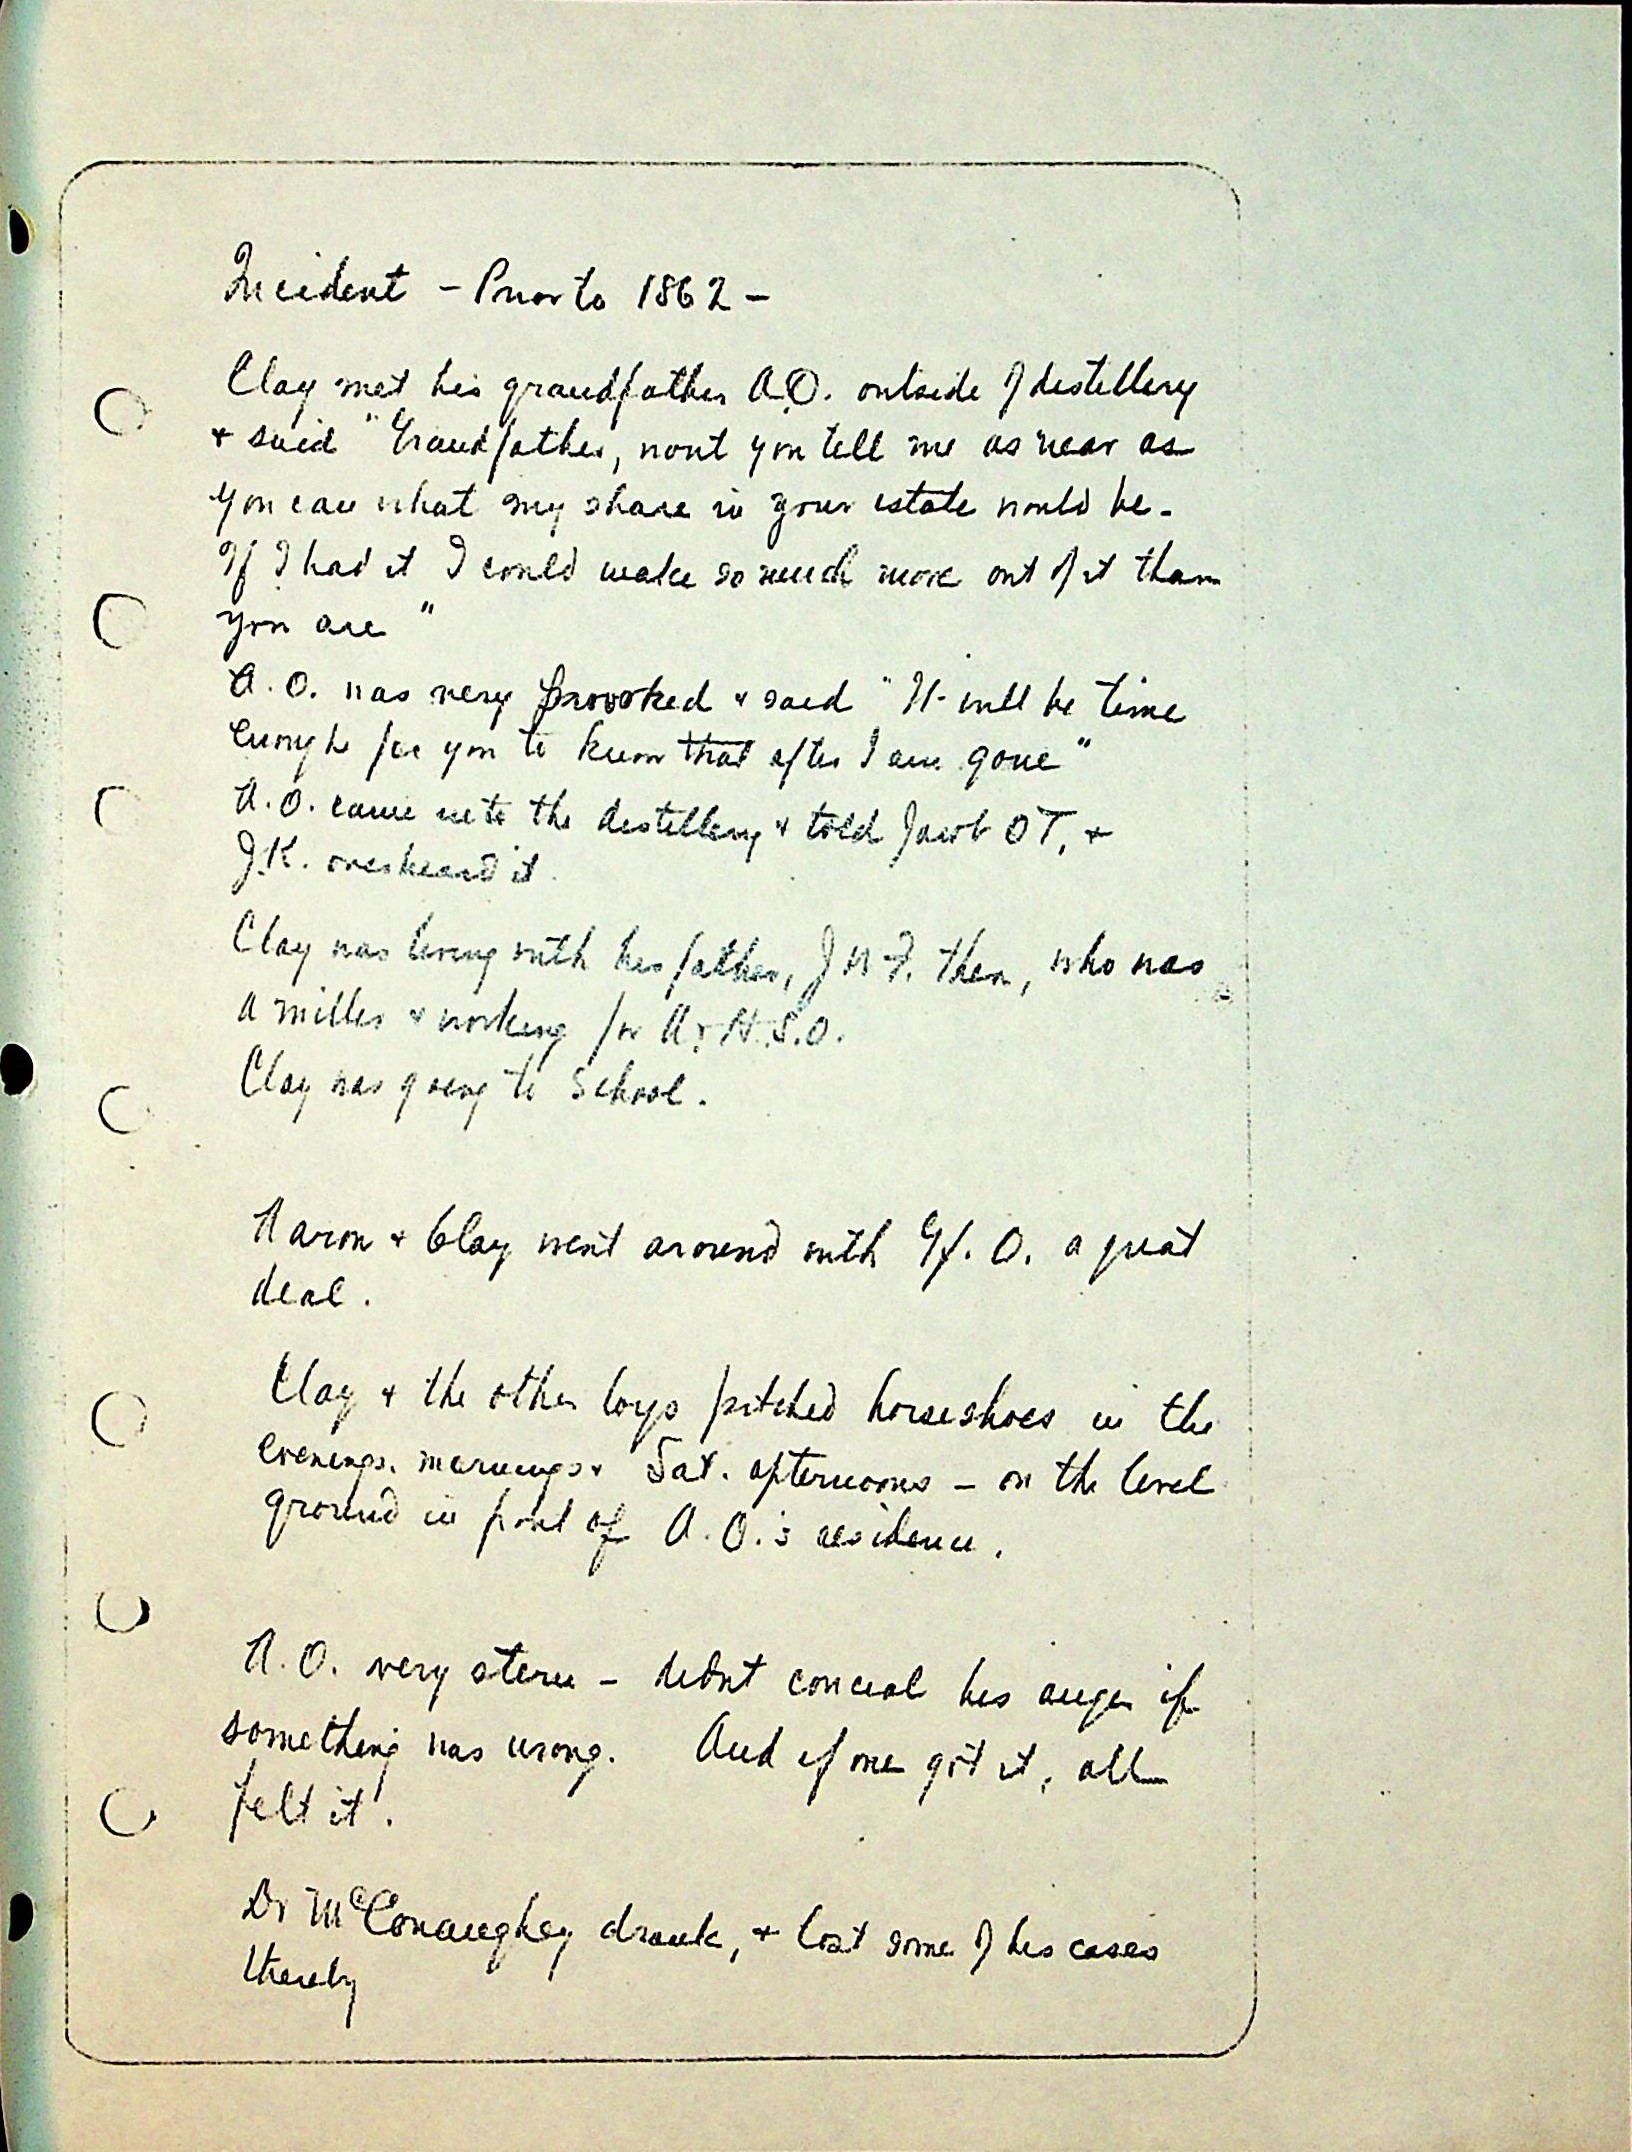 Incident - Prior to 1862 -
Clay met his grandfather A.O. outside of distillery
& said "Grandfather, wont you tell me as near as
you can what my share in your estate would be.
If I had it I could make so much more out of it than
you are"
A.O. was very provoked & said "It will be time
enough for you to know that after I am gone"
A.O. came into the distillery & told Jacob O T, &
J.K. overheard it.
Clay was living with his father, J W F. then, who was
a miller & working for A. & H.S.O.
Clay was going to School.
Aaron & Clay went around with Gf. O. a great
deal.
Clay & the other boys pitched horseshoes in the
evenings, mornings & Sat. afternoons - on the level
ground in front of A.O.'s residence.
A.O. very stern - didnt conceal his anger if
something was wrong. And if one got it, all
felt it.
Dr McConaughey drank, & lost some of his cases
thereby